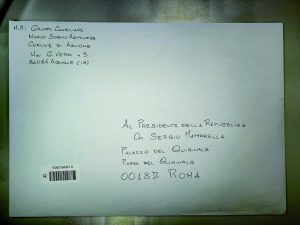 M.M: GRUPPO CONSILIARE
NUOVO SOGNO AGNONESE
COMUNE DI AGNONE
VIA G. VERDI n 9
86081 AGNONE (IS)
AL PRESIDENTE DELLA REPUBBLICA
ON SERGIO MATTARELLA
PALAZZO DEL QUIRINALE
PIAZZA DEL QUIRINALE
00187 ROMA
R